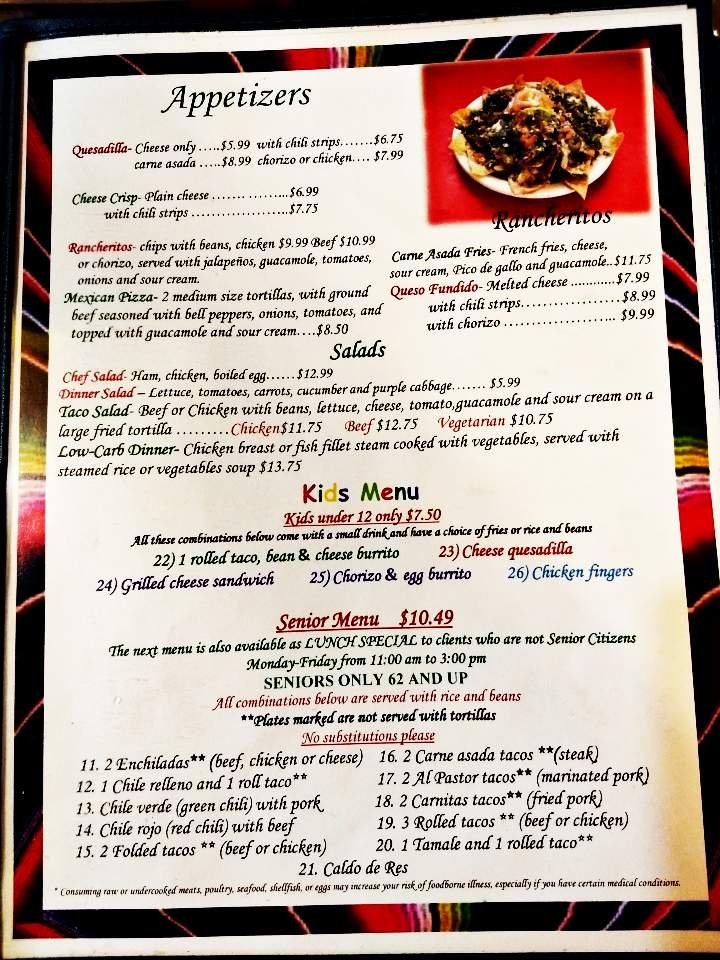 Appetizers
Quesadilla- Cheese only .....$5.99 with chili strips.......$6.75
carne asada .....$8.99 chorizo or chicken.... $7.99
Cheese Crisp- Plain cheese ...............$6.99
with chili strips ...................$7.75
Rancheritos- chips with beans, chicken $9.99 Beef $10.99
or chorizo, served with jalapeños, guacamole, tomatoes,
onions and sour cream.
Mexican Pizza- 2 medium size tortillas, with ground
beef seasoned with bell peppers, onions, tomatoes, and
topped with guacamole and sour cream....$8.50
Rancheritos
Carne Asada Fries- French fries, cheese,
sour cream, Pico de gallo and guacamole..$11.75
Queso Fundido- Melted cheese ............$7.99
with chili strips....................$8.99
with chorizo ...................... $9.99
Salads
Chef Salad- Ham, chicken, boiled egg......$12.99
Dinner Salad – Lettuce, tomatoes, carrots, cucumber and purple cabbage....... $5.99
Taco Salad- Beef or Chicken with beans, lettuce, cheese, tomato,guacamole and sour cream on a
large fried tortilla .........Chicken$11.75 Beef $12.75 Vegetarian $10.75
Low-Carb Dinner- Chicken breast or fish fillet steam cooked with vegetables, served with
steamed rice or vegetables soup $13.75
Kids Menu
Kids under 12 only $7.50
All these combinations below come with a small drink and have a choice of fries or rice and beans
22) 1 rolled taco, bean & cheese burrito 23) Cheese quesadilla
24) Grilled cheese sandwich 25) Chorizo & egg burrito 26) Chicken fingers
Senior Menu $10.49
The next menu is also available as LUNCH SPECIAL to clients who are not Senior Citizens
Monday-Friday from 11:00 am to 3:00 pm
SENIORS ONLY 62 AND UP
All combinations below are served with rice and beans
**Plates marked are not served with tortillas
No substitutions please
11. 2 Enchiladas** (beef, chicken or cheese)
12. 1 Chile relleno and 1 roll taco**
13. Chile verde (green chili) with pork
14. Chile rojo (red chili) with beef
15. 2 Folded tacos ** (beef or chicken)
16. 2 Carne asada tacos **(steak)
17. 2 Al Pastor tacos** (marinated pork)
18. 2 Carnitas tacos** (fried pork)
19. 3 Rolled tacos ** (beef or chicken)
20. 1 Tamale and 1 rolled taco**
21. Caldo de Res
* Consuming raw or undercooked meats, poultry, seafood, shellfish, or eggs may increase your risk of foodborne illness, especially if you have certain medical conditions.